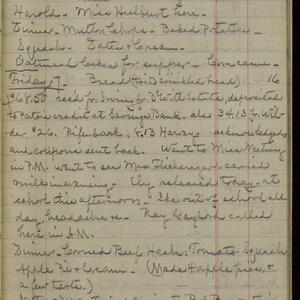 Harold - Miss Hulburt here.
Dinner - Mutton Chops - Baked Potatoes -
Squash - Dates & Cream.
Oatmeal cooked for supper - Corn cans -
Friday 17. Bread (for Dr. head) 16
$68.50 recd fr. Irving fr. Estate, deposited
to Pa's credit at Savings Bank. also 34.13 fr.
der, $26. Pifenbark, $13 Harvey - acknowledged
and coupons sent back. Went to Miss. Meeting
in P.M. went to see Mrs. - carried
milk in evening - Ely released today - at
school this afternoon. Ike out of school all
day, headache &c - Ray Gaylord called
here in A.M.
Dinner - Corned Beef Hash, Tomato, Squash
Apple Pie & Cream. (Made 4 apple pies, &
a few tarts.)